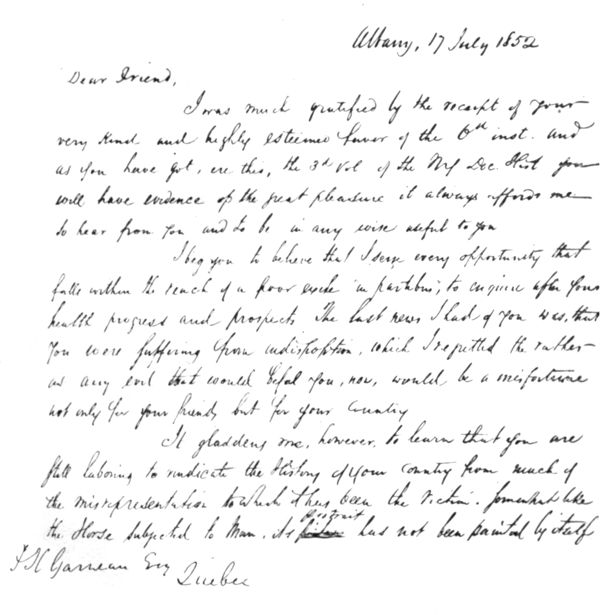 Albany, 17 July 1852
Dear Friend,
I was much gratified by the receipt of your
very kind and highly esteemed favor of the 6th inst. and
as you have got, ere this, the 3d Vol of the NY Doc. Hist you
will have evidence of the great pleasure it always affords me
to hear from you and to be in any wise useful to you
I beg you to believe that I seize every opportunity that
falls within the reach of a poor exile in partibus, to enquire after your
health progress and prospects The last news I had of you was, that
you were suffering from indisposition, which I regretted the rather
as any evil that would befal you, now, would be a misfortune
not only for your friends but for your Country
It gladdens me, however, to learn that you are
still laboring to vindicate the History of your Country from much of
the misrepresentation to which it has been the victim. Somewhat like
the Horse subjected to Man, its portrait has not been painted by itself
F X Garneau Esq
Quebec